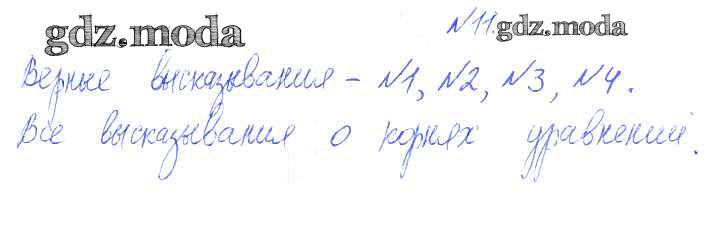 gdz.moda №11. gdz.moda
Верные высказывания – №1, №2, №3, №4.
Все высказывания о корнях уравнений.